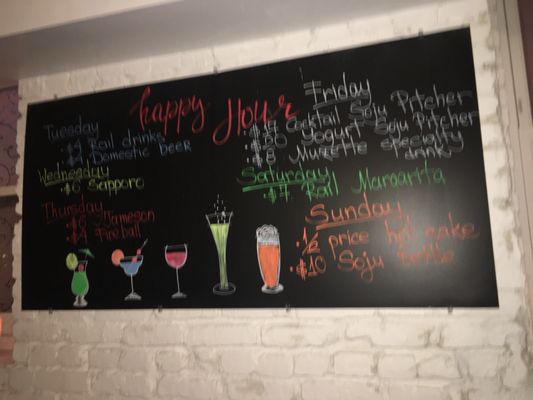 happy Hour
Tuesday
Rail drinks
Domestic beer
Wednesday
$6 Sapporo
Thursday
Jameson
Fireball
Friday
Cocktail Soju Pitcher
Yogurt Soju Pitcher
specialty
drink
Saturday
$7 Rail Margarita
Sunday
1/2 price hot sake
$10 Soju Bottle